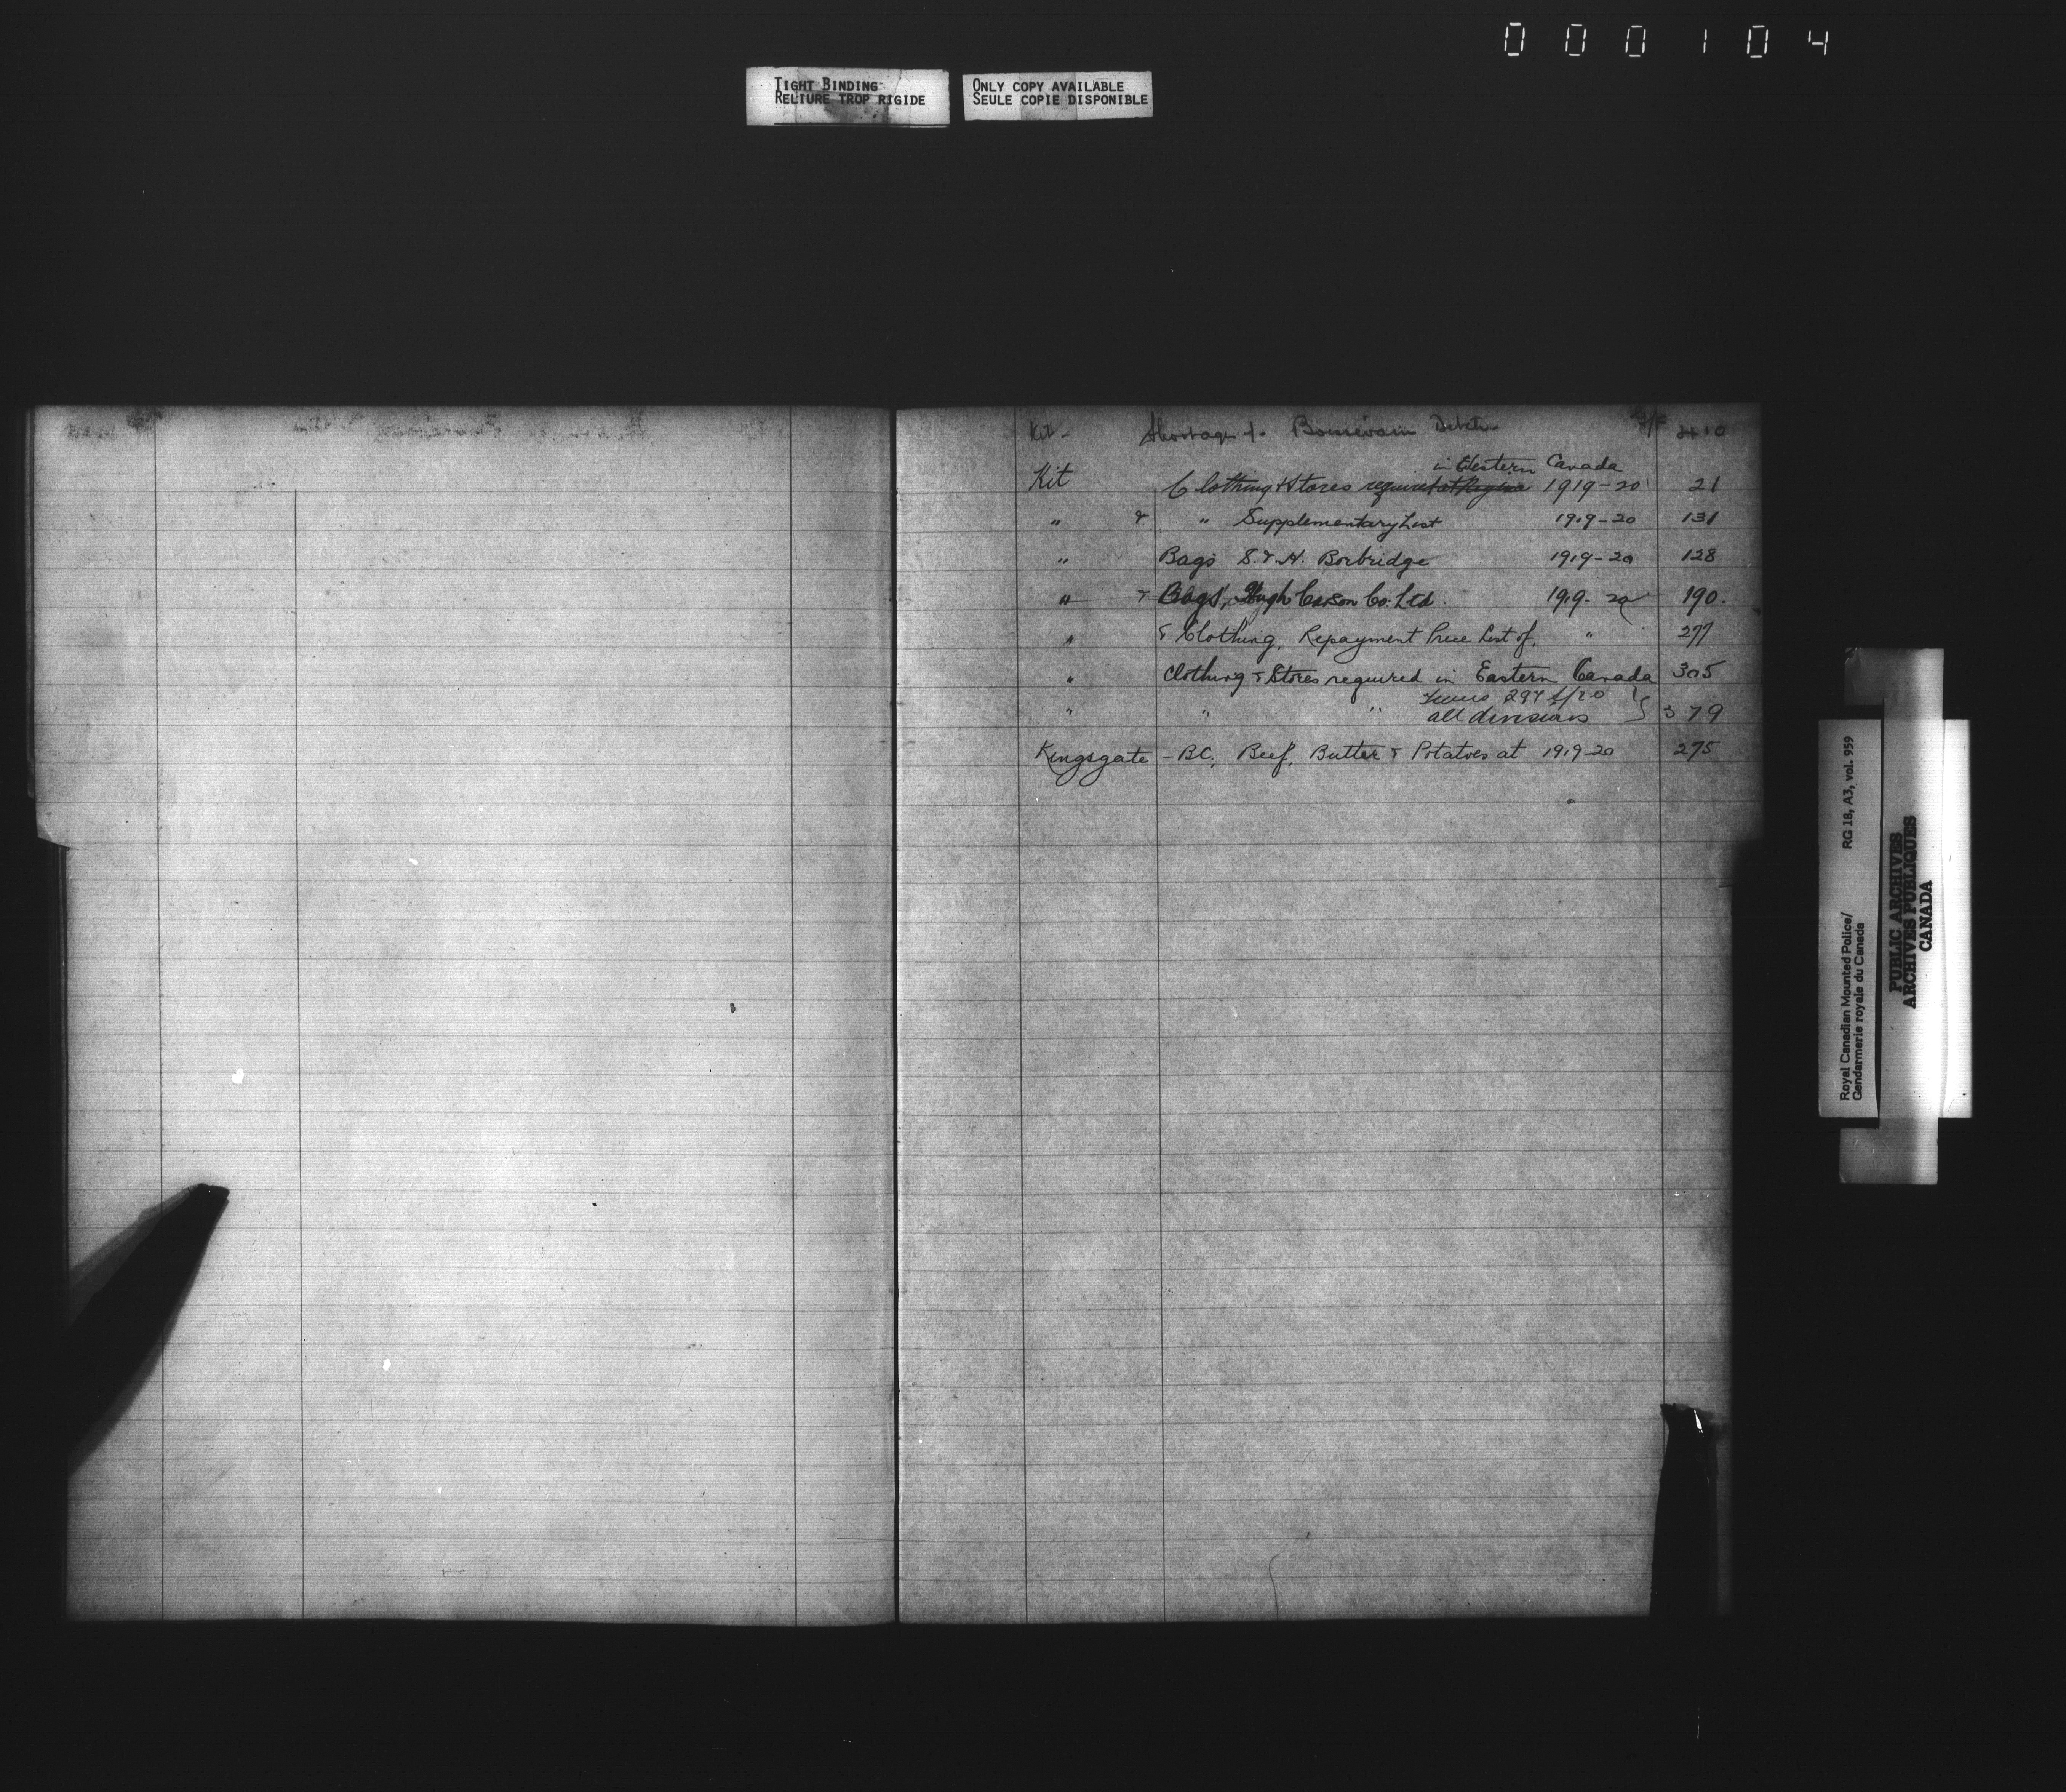 000104
TIGHT BINDING
RELIURE TROP RIGIDE
ONLY COPY AVAILABLE
SEULE COPIE DISPONIBLE
Kit - Shortage of - Boissevain 410
in Western Canada
Kit Clothing & Stores required at Regina 1919-20 21
" & " Supplementary List 1919-20 131
" Bags S. & H. Borbridge 1919-20 128
" & Bags, Hugh Carson Co. Ltd. 1919-20 190.
" & Clothing, Repayment Price List of, " 277
" Clothing & Stores required in Eastern Canada 305
294 /20
" " " all divisions } 379
Kingsgate - BC, Beef, Butter & Potatoes at 1919-20 275
Royal Canadian Mounted Police/ RG 18, A3, vol. 959
Gendarmerie royale du Canada
PUBLIC ARCHIVES
ARCHIVES PUBLIQUES
CANADA